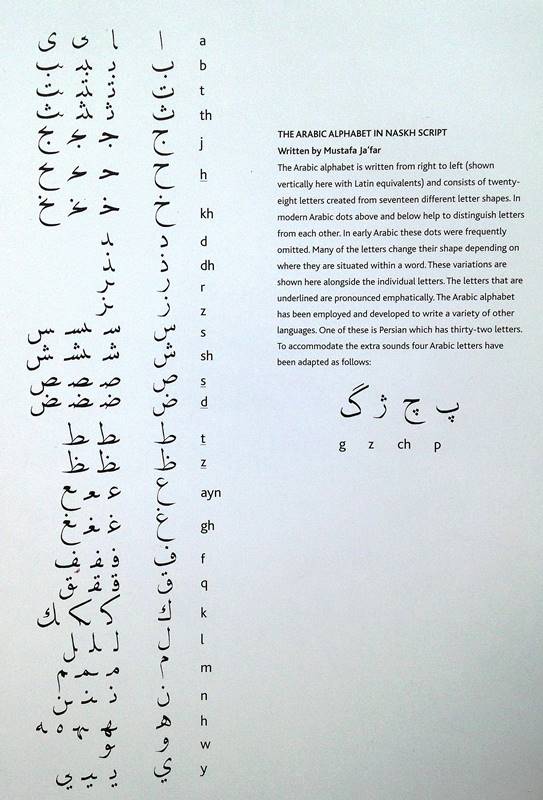 a ا ا ى ى
b ب بـ ـبـ ـب
t ت تـ ـتـ ـت
th ث ثـ ـثـ ـث
j ج جـ ـجـ ـج
h ح حـ ـحـ ـح
kh خ خـ ـخـ ـخ
d د ـد
dh ذ ـذ
r ر ـر
z ز ـز
s س سـ ـسـ ـس
sh ش شـ ـشـ ـش
s ص صـ ـصـ ـص
d ض ضـ ـضـ ـض
t ط ط ط
z ظ ظ ظ
ayn ع عـ ـعـ ـع
gh غ غـ ـغـ ـغ
f ف فـ ـفـ ـف
q ق قـ ـقـ ـق
k ك كـ ـكـ ـك
l ل لـ ـلـ ـل
m م مـ ـمـ ـم
n ن نـ ـنـ ـن
h ه هـ ـهـ ه ـه
w و ـو
y ي يـ ـيـ ـي
THE ARABIC ALPHABET IN NASKH SCRIPT
Written by Mustafa Ja'far
The Arabic alphabet is written from right to left (shown
vertically here with Latin equivalents) and consists of twenty-
eight letters created from seventeen different letter shapes. In
modern Arabic dots above and below help to distinguish letters
from each other. In early Arabic these dots were frequently
omitted. Many of the letters change their shape depending on
where they are situated within a word. These variations are
shown here alongside the individual letters. The letters that are
underlined are pronounced emphatically. The Arabic alphabet
has been employed and developed to write a variety of other
languages. One of these is Persian which has thirty-two letters.
To accommodate the extra sounds four Arabic letters have
been adapted as follows:
پ چ ژ گ
g z ch p